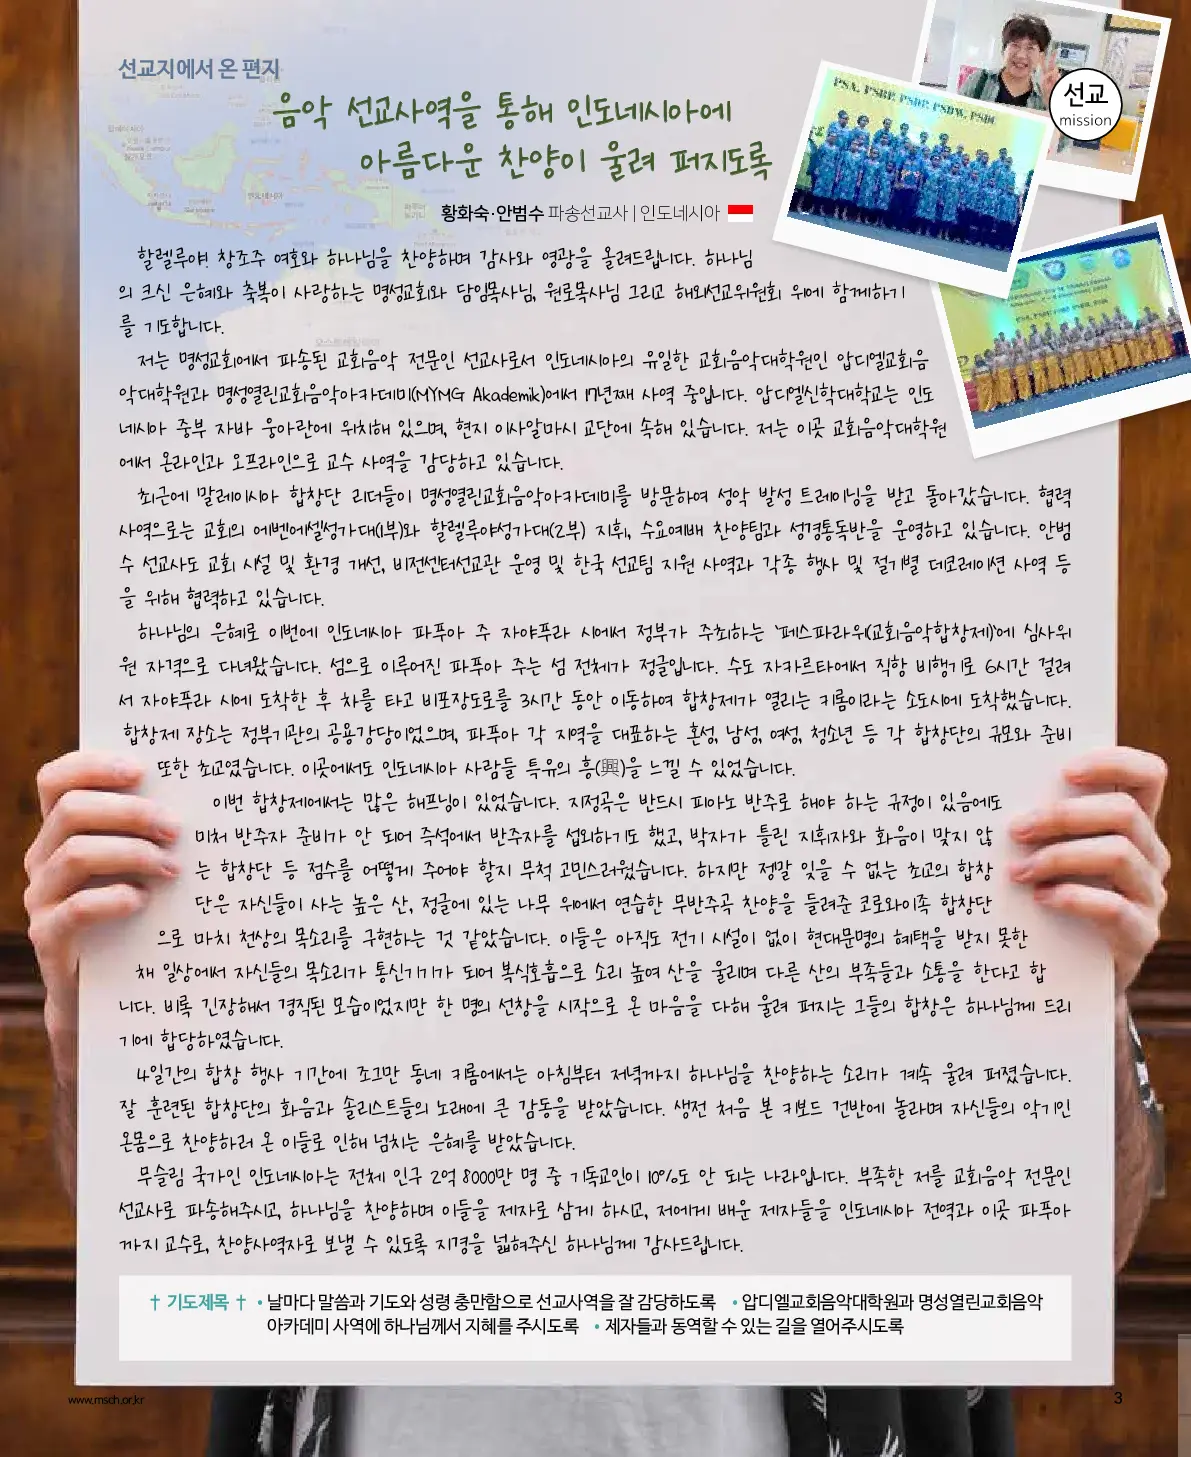 선교지에서 온 편지
음악 선교사역을 통해 인도네시아에
아름다운 찬양이 울려 퍼지도록
황화숙·안범수 파송선교사 | 인도네시아
선교
mission
PSA, PSRP, PSDP, PSDW, PSDC
할렐루야! 창조주 여호와 하나님을 찬양하며 감사와 영광을 올려드립니다. 하나님
의 크신 은혜와 축복이 사랑하는 명성교회와 담임목사님, 원로목사님 그리고 해외선교위원회 위에 함께하기
를 기도합니다.
저는 명성교회에서 파송된 교회음악 전문인 선교사로서 인도네시아의 유일한 교회음악대학원인 압디엘교회음
악대학원과 명성열린교회음악아카데미(MYMG Akademik)에서 17년째 사역 중입니다. 압디엘신학대학교는 인도
네시아 중부 자바 웅아란에 위치해 있으며, 현지 이사알마시 교단에 속해 있습니다. 저는 이곳 교회음악대학원
에서 온라인과 오프라인으로 교수 사역을 감당하고 있습니다.
최근에 말레이시아 합창단 리더들이 명성열린교회음악아카데미를 방문하여 성악 발성 트레이닝을 받고 돌아갔습니다. 협력
사역으로는 교회의 에벤에셀성가대(1부)와 할렐루야성가대(2부) 지휘, 수요예배 찬양팀과 성경통독반을 운영하고 있습니다. 안범
수 선교사도 교회 시설 및 환경 개선, 비전센터선교관 운영 및 한국 선교팀 지원 사역과 각종 행사 및 절기별 데코레이션 사역 등
을 위해 협력하고 있습니다.
하나님의 은혜로 이번에 인도네시아 파푸아 주 자야푸라 시에서 정부가 주최하는 '페스파라위(교회음악합창제)'에 심사위
원 자격으로 다녀왔습니다. 섬으로 이루어진 파푸아 주는 섬 전체가 정글입니다. 수도 자카르타에서 직항 비행기로 6시간 걸려
서 자야푸라 시에 도착한 후 차를 타고 비포장도로를 3시간 동안 이동하여 합창제가 열리는 키롬이라는 소도시에 도착했습니다.
합창제 장소는 정부기관의 공용강당이었으며, 파푸아 각 지역을 대표하는 혼성, 남성, 여성, 청소년 등 각 합창단의 규모와 준비
또한 최고였습니다. 이곳에서도 인도네시아 사람들 특유의 흥(興)을 느낄 수 있었습니다.
이번 합창제에서는 많은 해프닝이 있었습니다. 지정곡은 반드시 피아노 반주로 해야 하는 규정이 있음에도
미처 반주자 준비가 안 되어 즉석에서 반주자를 섭외하기도 했고, 박자가 틀린 지휘자와 화음이 맞지 않
는 합창단 등 점수를 어떻게 주어야 할지 무척 고민스러웠습니다. 하지만 정말 잊을 수 없는 최고의 합창
단은 자신들이 사는 높은 산, 정글에 있는 나무 위에서 연습한 무반주곡 찬양을 들려준 코로와이족 합창단
으로 마치 천상의 목소리를 구현하는 것 같았습니다. 이들은 아직도 전기 시설이 없이 현대문명의 혜택을 받지 못한
채 일상에서 자신들의 목소리가 통신기기가 되어 복식호흡으로 소리 높여 산을 울리며 다른 산의 부족들과 소통을 한다고 합
니다. 비록 긴장해서 경직된 모습이었지만 한 명의 선창을 시작으로 온 마음을 다해 울려 퍼지는 그들의 합창은 하나님께 드리
기에 합당하였습니다.
4일간의 합창 행사 기간에 조그만 동네 키롬에서는 아침부터 저녁까지 하나님을 찬양하는 소리가 계속 울려 퍼졌습니다.
잘 훈련된 합창단의 화음과 솔리스트들의 노래에 큰 감동을 받았습니다. 생전 처음 본 키보드 건반에 놀라며 자신들의 악기인
온몸으로 찬양하러 온 이들로 인해 넘치는 은혜를 받았습니다.
무슬림 국가인 인도네시아는 전체 인구 2억 8000만 명 중 기독교인이 10%도 안 되는 나라입니다. 부족한 저를 교회음악 전문인
선교사로 파송해주시고, 하나님을 찬양하며 이들을 제자로 삼게 하시고, 저에게 배운 제자들을 인도네시아 전역과 이곳 파푸아
까지 교수로, 찬양사역자로 보낼 수 있도록 지경을 넓혀주신 하나님께 감사드립니다.
✝ 기도제목 ✝ • 날마다 말씀과 기도와 성령 충만함으로 선교사역을 잘 감당하도록 • 압디엘교회음악대학원과 명성열린교회음악
아카데미 사역에 하나님께서 지혜를 주시도록 • 제자들과 동역할 수 있는 길을 열어주시도록
www.msch.or.kr
3